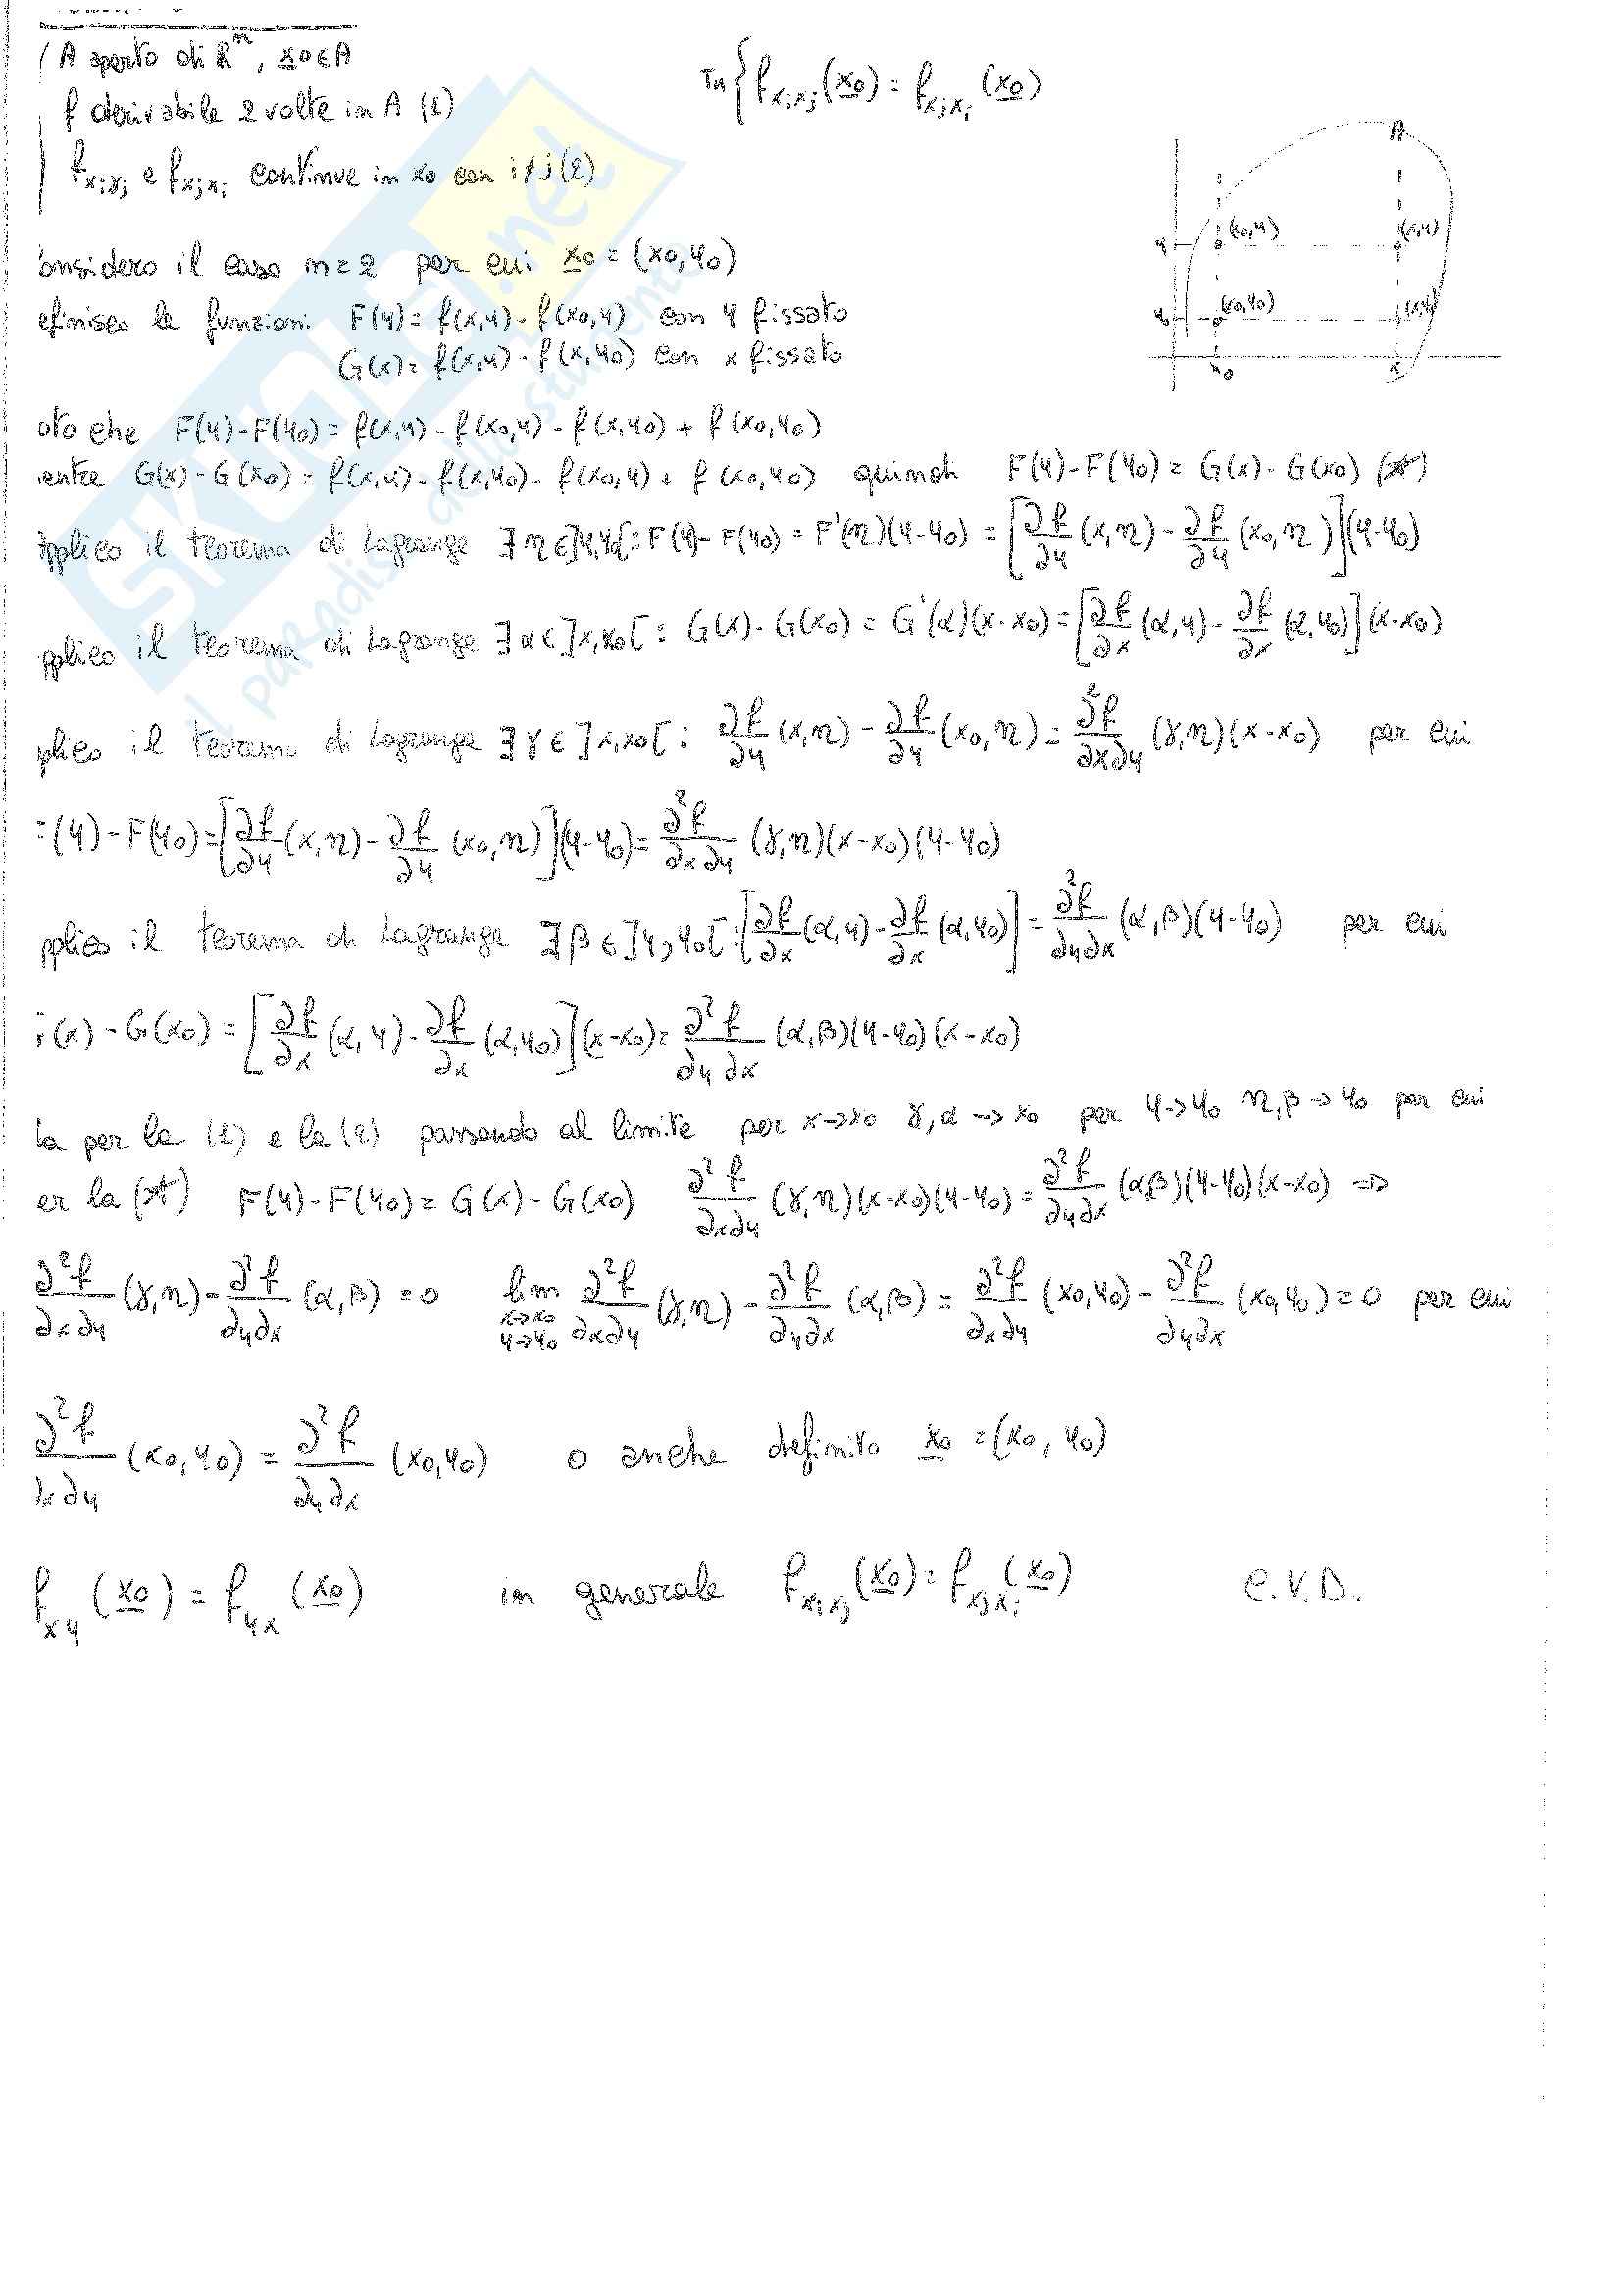 A aperto di Rⁿ, x0 ∈ A
Tn { f_xixj (x0) = f_xjxi (x0)
f derivabile 2 volte in A (1)
f_xixj e f_xjxi continue in x0 con i≠j (2)
A
y (x0,y) (x,y)
y0 (x0,y0) (x,y0)
x0 x
onsidero il caso n=2 per cui x0 = (x0,y0)
efinisco le funzioni F(y) = f(x,y) - f(x0,y) con y fissato
G(x) = f(x,y) - f(x,y0) con x fissato
oto che F(y)-F(y0) = f(x,y) - f(x0,y) - f(x,y0) + f(x0,y0)
entre G(x)-G(x0) = f(x,y) - f(x,y0) - f(x0,y) + f(x0,y0) quindi F(y)-F(y0) = G(x)-G(x0) (*)
pplico il teorema di Lagrange ∃ η ∈ ]y,y0[ : F(y)-F(y0) = F'(η)(y-y0) = [∂f/∂y (x,η) - ∂f/∂y (x0,η)](y-y0)
pplico il teorema di Lagrange ∃ α ∈ ]x,x0[ : G(x)-G(x0) = G'(α)(x-x0) = [∂f/∂x (α,y) - ∂f/∂x (α,y0)](x-x0)
plico il teorema di Lagrange ∃ γ ∈ ]x,x0[ : ∂f/∂y (x,η) - ∂f/∂y (x0,η) = ∂²f/∂x∂y (γ,η)(x-x0) per cui
(y)-F(y0) = [∂f/∂y (x,η) - ∂f/∂y (x0,η)](y-y0) = ∂²f/∂x∂y (γ,η)(x-x0)(y-y0)
pplico il teorema di Lagrange ∃ β ∈ ]y,y0[ : [∂f/∂x (α,y) - ∂f/∂x (α,y0)] = ∂²f/∂y∂x (α,β)(y-y0) per cui
(x)-G(x0) = [∂f/∂x (α,y) - ∂f/∂x (α,y0)](x-x0) = ∂²f/∂y∂x (α,β)(y-y0)(x-x0)
a per la (1) e la (2) passando al limite per x→x0 γ,α → x0 per y→y0 η,β → y0 per cui
er la (*) F(y)-F(y0) = G(x)-G(x0) ∂²f/∂x∂y (γ,η)(x-x0)(y-y0) = ∂²f/∂y∂x (α,β)(y-y0)(x-x0) ⇒
∂²f/∂x∂y (γ,η) - ∂²f/∂y∂x (α,β) = 0 lim x→x0 y→y0 ∂²f/∂x∂y (γ,η) - ∂²f/∂y∂x (α,β) = ∂²f/∂x∂y (x0,y0) - ∂²f/∂y∂x (x0,y0) = 0 per cui
∂²f/∂x∂y (x0,y0) = ∂²f/∂y∂x (x0,y0) o anche definito x0 = (x0,y0)
f_xy (x0) = f_yx (x0) in generale f_xixj (x0) = f_xjxi (x0) C.V.D.
SKUOLA.net
il paradiso dello studente